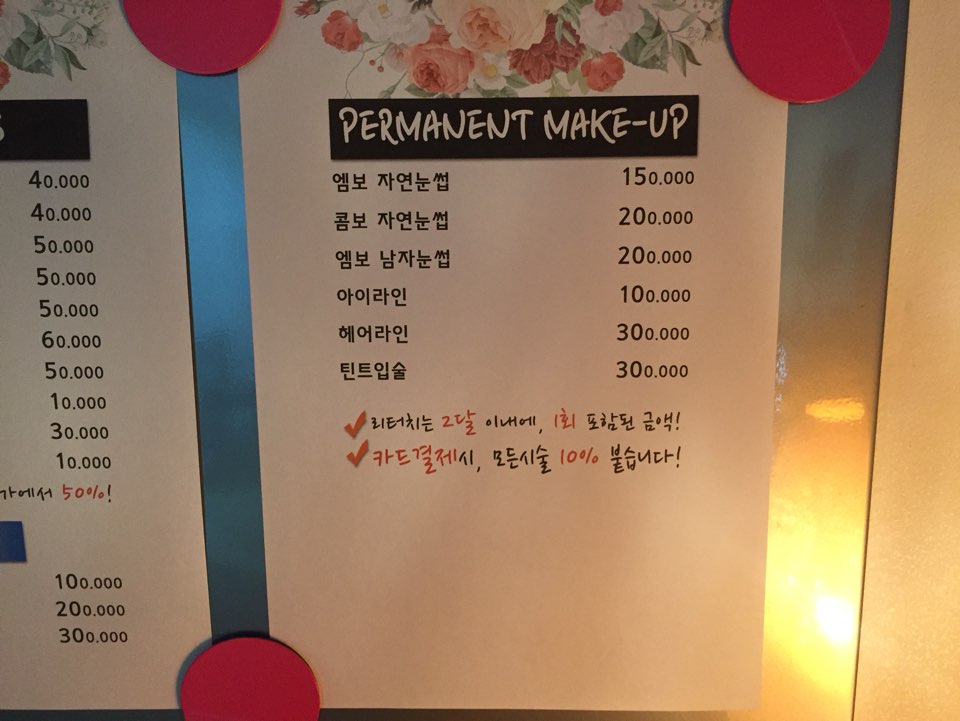 40.000
40.000
50.000
50.000
50.000
60.000
50.000
10.000
30.000
10.000
가에서 50%!
100.000
200.000
300.000
PERMANENT MAKE-UP
엠보 자연눈썹 150.000
콤보 자연눈썹 200.000
엠보 남자눈썹 200.000
아이라인 100.000
헤어라인 300.000
틴트입술 300.000
리터치는 2달 이내에, 1회 포함된 금액!
카드결제시, 모든시술 10% 붙습니다!